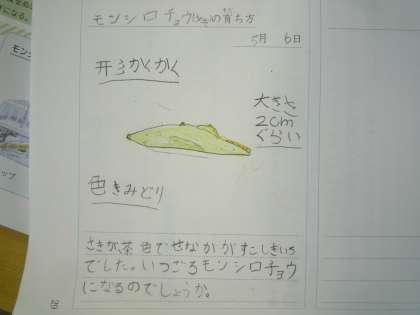 モンシロチョウの育ち方
5月 6日
形 かくかく
大きさ
2cm
ぐらい
色 きみどり
さきが、茶色でせなかがすこしきいろ
でした。いつごろモンシロチョウ
になるのでしょうか。